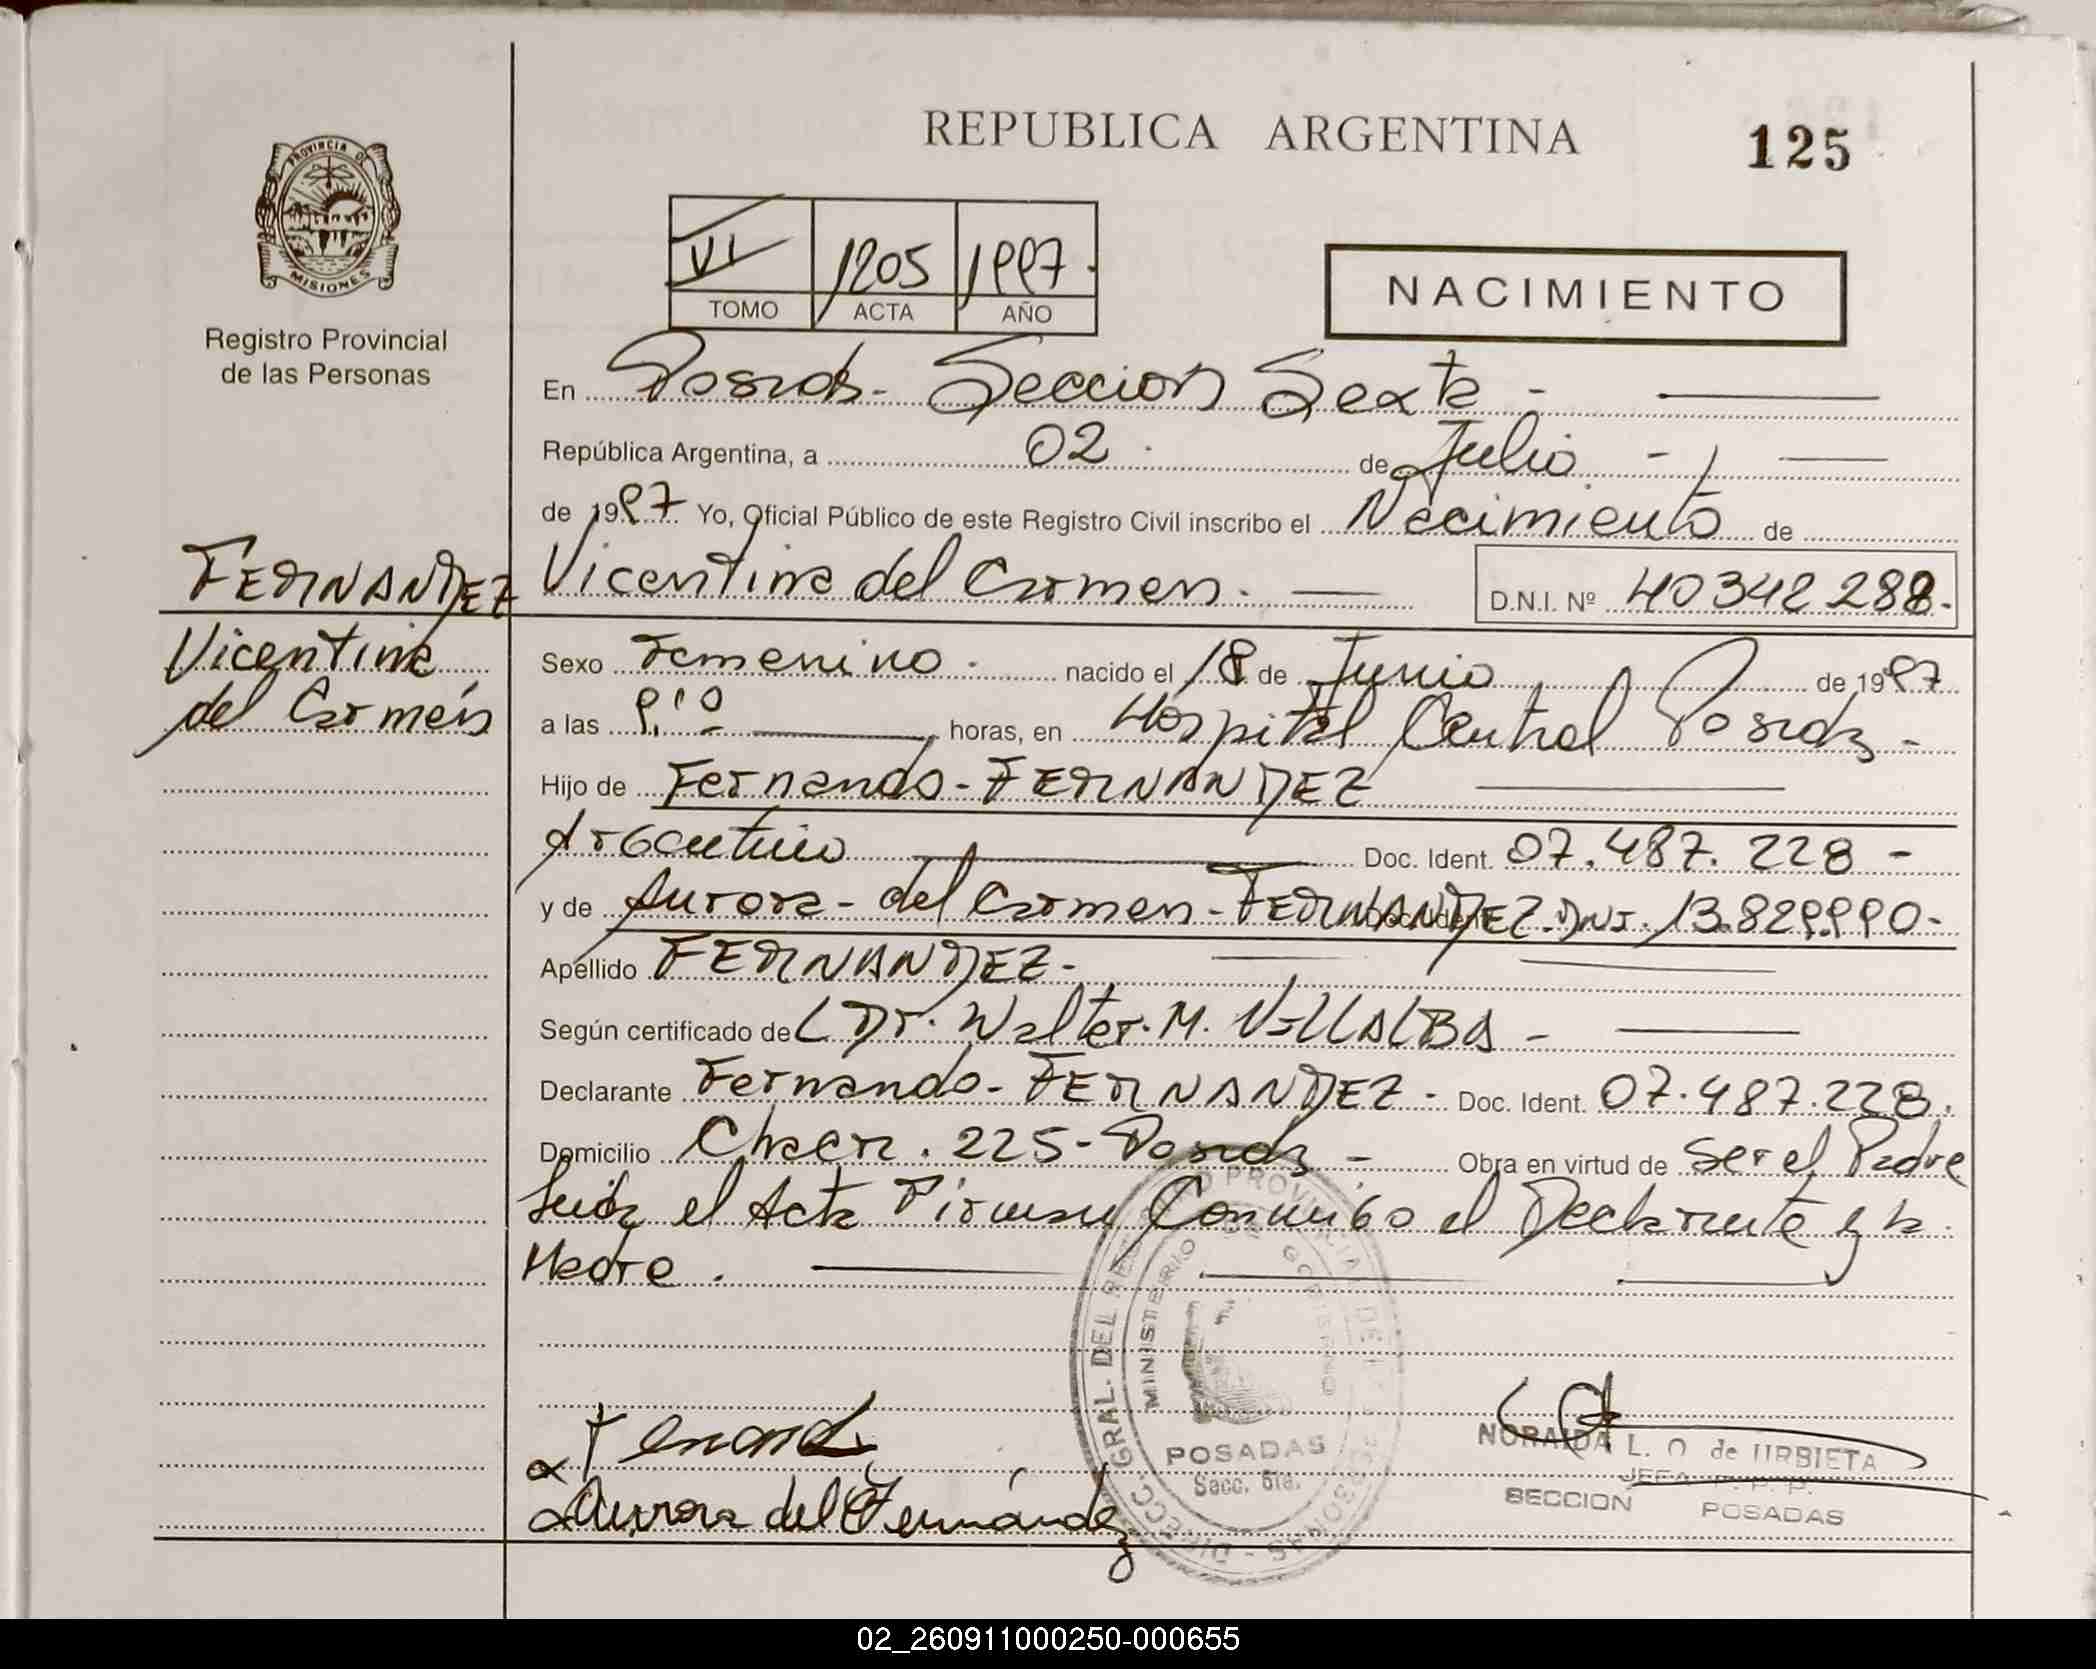 REPUBLICA ARGENTINA
125
PROVINCIA DE
MISIONES
Registro Provincial
de las Personas
VI 1205 1997.
TOMO ACTA AÑO
NACIMIENTO
En Posadas - Seccion Sexta -
República Argentina, a 02 de Julio -
de 1997 Yo, Oficial Público de este Registro Civil inscribo el Nacimiento de
FERNANDEZ
Vicentina del Carmen. D.N.I. Nº 40342288.
Vicentina
del Carmen
Sexo Femenino. nacido el 18 de Junio de 1997
a las 9,10 horas, en Hospital Central Posadas -
Hijo de Fernando - FERNANDEZ
Argentino Doc. Ident. 07.487.228 -
y de Aurora - del Carmen - FERNANDEZ. DNI. 13.829.990 -
Apellido FERNANDEZ -
Según certificado del Dr. Walter. M. VILLALBA -
Declarante Fernando - FERNANDEZ - Doc. Ident. 07.487.228.
Domicilio 225 - Posadas - Obra en virtud de Ser el Padre
Leida el Acta Firman Conmigo el Declarante y la
Madre.
DIRECC. GRAL. DEL REGISTRO PROVINCIAL DE LAS PERSONAS
MINISTERIO DE GOBIERNO
POSADAS
Secc. 6ta.
Fernand
Aurora del C Fernández
NORAIDA L. O. de URBIETA
JEFA R. P. P.
SECCION POSADAS
02_260911000250-000655